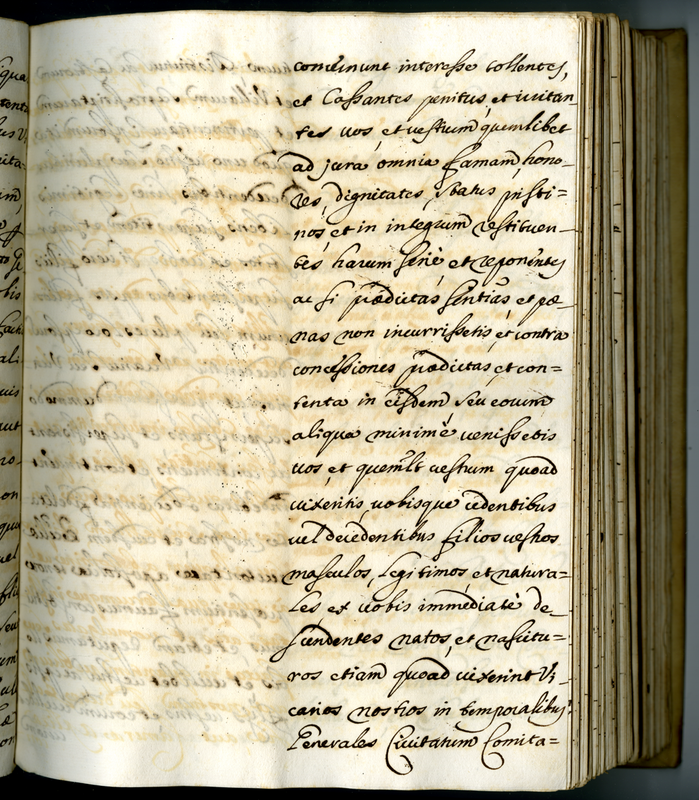 continunt interesse tollentes,
et Cassantes penitus, et irritan
tes vos, et vestrum quemlibet
ad jura omnia famam, hono-
res, dignitates, status pristi=
nos et in integrum restituen-
tes harum serie et reponentes
ac si prædictas sentias et pæ-
nas non incurrissetis, et contra
concessiones prædictas, et con=
tenta in eisdem seu eorum
aliqua minimè venissetis
vos, et quemlt vestrum quoad
vixeritis, vobisque cedentibus
vel decedentibus filios vestros
masculos, legitimos, et natura=
les ex vobis immediatè de-
scendentes natos, et nascitu=
ros etiam quoad vixerint Vi-
carios nostros in temporalibus
Generales Civitatum Comita=